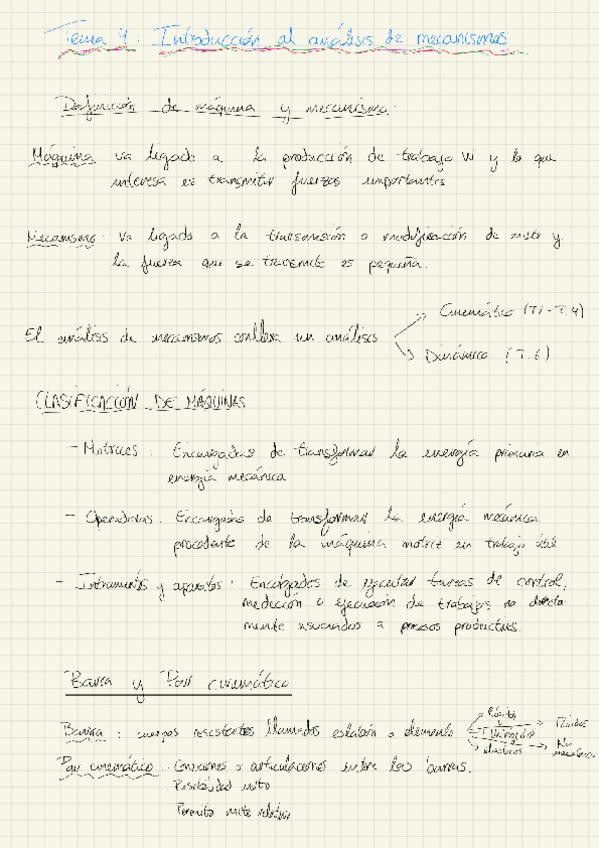 Tema 4: Introducción al análisis de mecanismos
Definición de máquina y mecanismo.
Máquina: va ligado a la producción de trabajo W y lo que
interesa es transmitir fuerzas importantes
Mecanismo: va ligado a la transmisión o modificación de mvto y
la fuerza que se transmite es pequeña.
El análisis de mecanismos conlleva un análisis
Cinemático (T1-T.4)
Dinámico (T.6)
CLASIFICACIÓN DE MÁQUINAS
- Motrices: Encargadas de transformar la energía primaria en
energía mecánica
- Operadoras: Encargadas de transformar la energía mecánica
procedente de la máquina motriz en trabajo útil
- Intrumentos y aparatos: Encargados de ejecutar tareas de control,
medición o ejecución de trabajos no directa
mente asociados a procesos productivos.
Barra y Par cinemático
Barra: cuerpos resistentes llamados eslabón o elemento
Rígidos
elásticos
Fluidos
No
Par cinemático: Conexiones o articulaciones entre las barras.
mvto
Permite mvto relativo